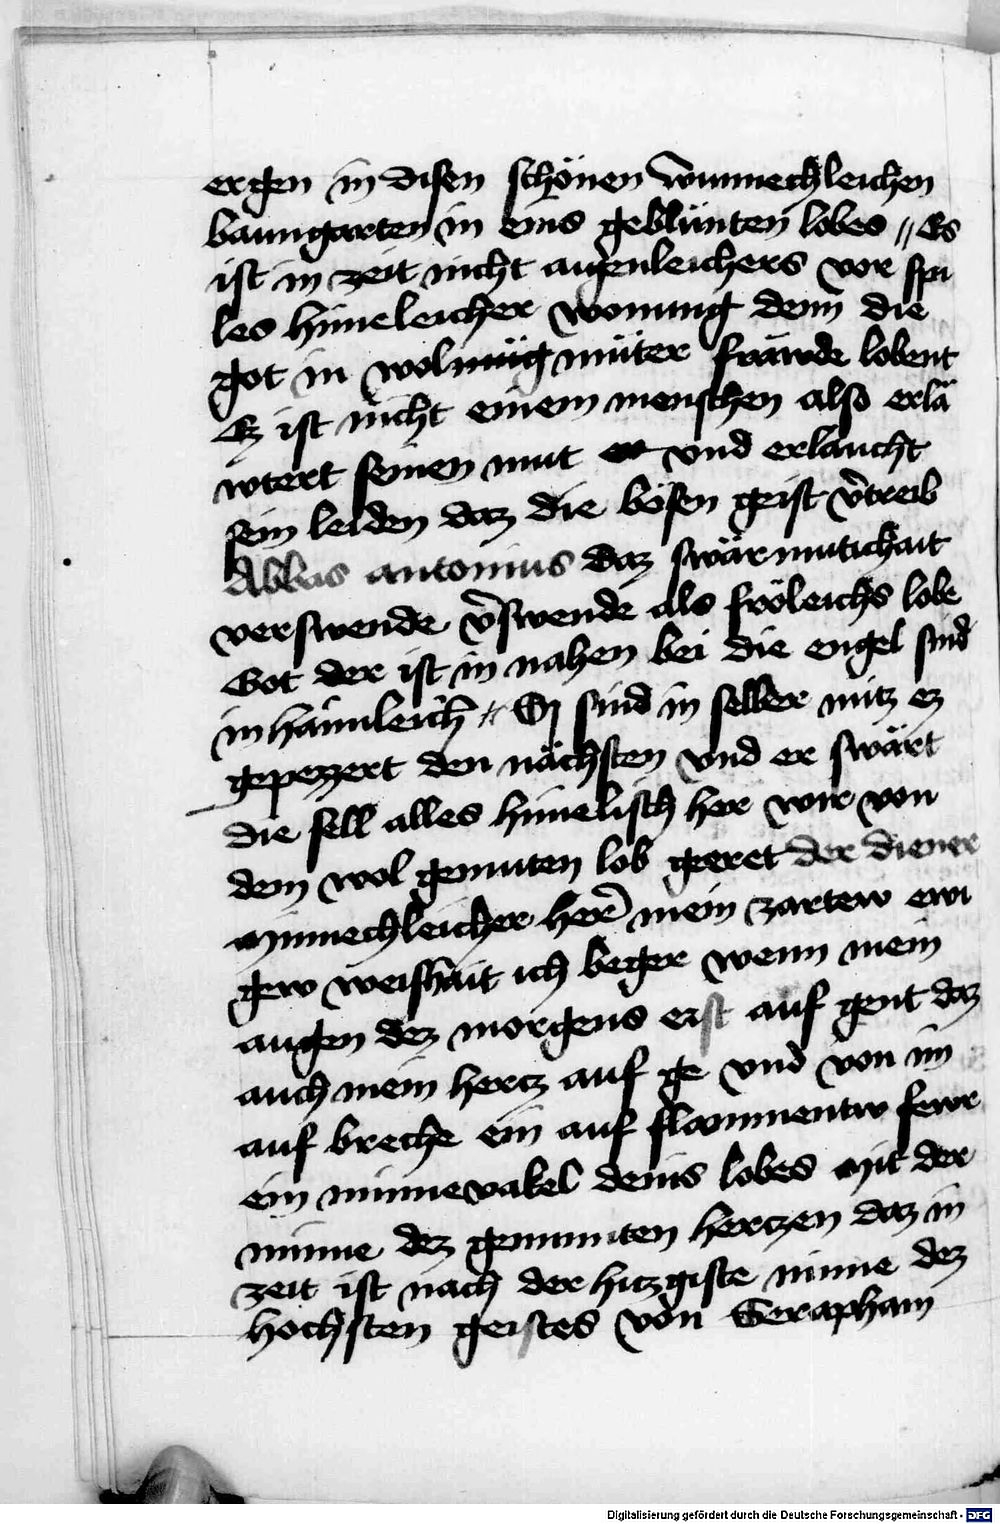 ergen in disen schönen wunnechleichen
baumgarten in eins geblümten lobes // Es
ist in zeit nicht augenleichers vor spi
les himeleicher wonung denn die
got in wolmüg müter fräwde lobent
Ez ist nicht einem menschen also erlä
wtert seinen mut vnd erlaucht
sein leiden daz die bösen geist v̄treib
Abbas antonius daz swärmutichait
verswende v̄swende als fröleichs lobe
Got der ist in nahen bei die engel sind
in haimleich // Sy sind in selber nütz ez
gepezzert den nächsten vnd er swärt
die sell alles himelisch her wir von
dem wol gemuten lob geeret der diener
Minnechleicher her̄ mein zartew ewi
gew weishait ich beger wenn mein
augen dez morgens erst auf gent daz
auch mein hercz auf ge vnd von im
auf breche ein auf flammentw fewr
ein minnevakel deins lobes mit der
minne dez gemuten herczen daz in
zeit ist nach der hitzgiste minne dez
hochsten geistes von Seraphain
Digitalisierung gefördert durch die Deutsche Forschungsgemeinschaft - DFG